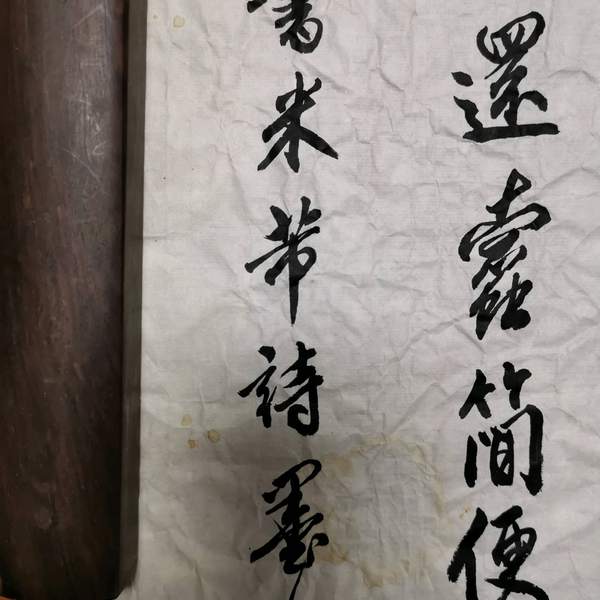 還蠹簡便
書米芾詩墨